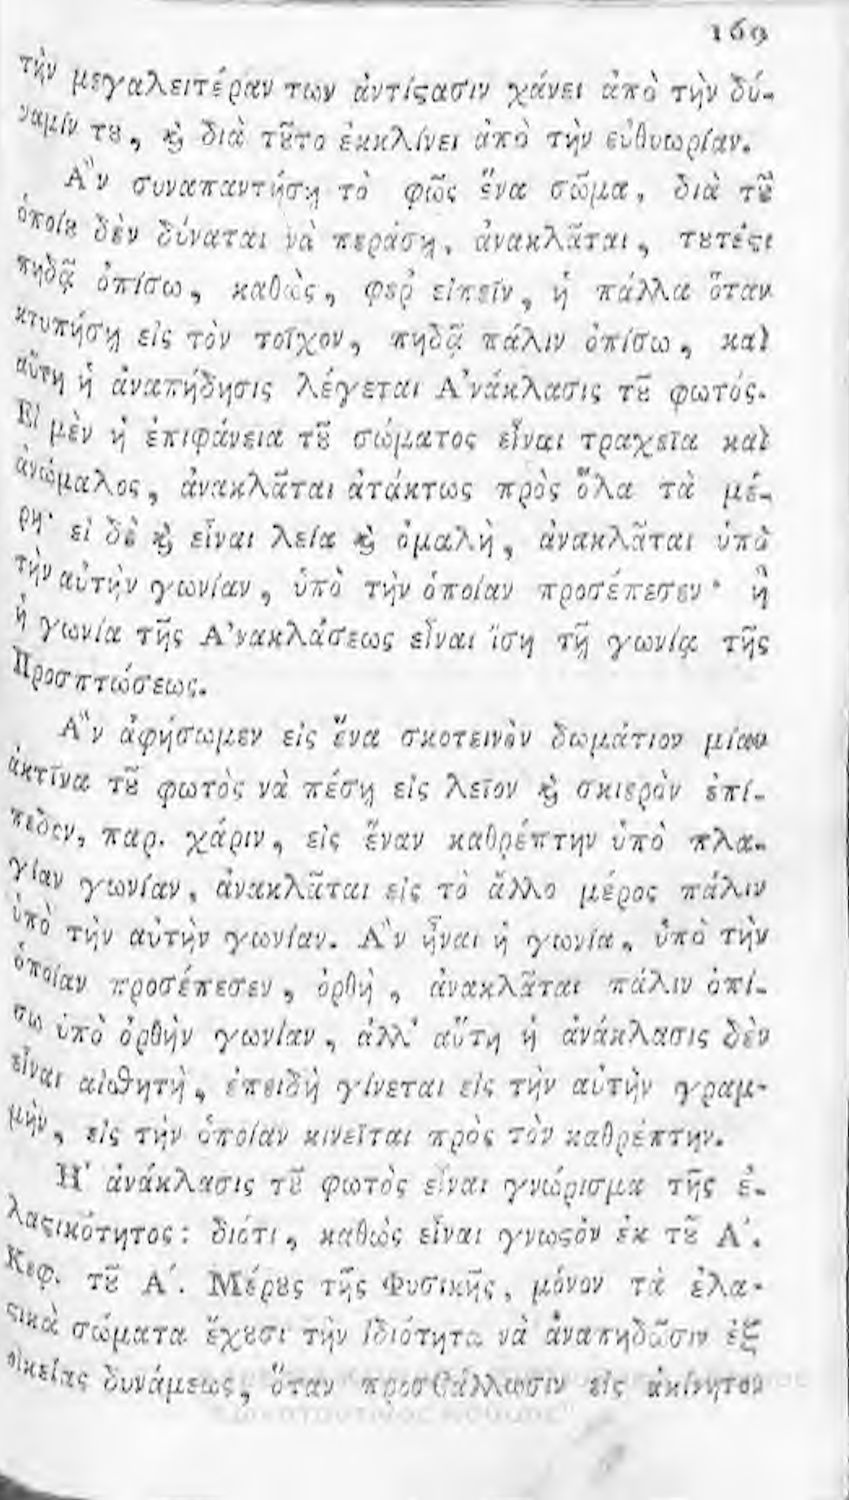 169
τὴν μεγαλειτέραν των ἀντίϛασιν χάνει ἀπὸ τὴν δύ-
ναμίν τȣ, ϗ̀ διὰ τȣ͂το ἐκκλίνει ἀπὸ τὴν εὐθυωρίαν.
Α῎ν συναπαντήσῃ τὸ φῶς ἕνα σῶμα, διὰ τȣ͂
ὁποίȣ δὲν δύναται νὰ περάσῃ, ἀνακλᾶται, τȣτέϛι
πηδᾷ ὀπίσω, καθὼς, φερ᾽ εἰπεῖν, ἡ πάλλα ὅταν
κτυπήσῃ εἰς τὸν τοῖχον, πηδᾷ πάλιν ὀπίσω, καὶ
αὕτη ἡ ἀναπήδησις λέγεται Α᾽νάκλασις τȣ͂ φωτός.
Εἰ μὲν ἡ ἐπιφάνεια τȣ͂ σώματος εἶναι τραχεῖα καὶ
ἀνώμαλος, ἀνακλᾶται ἀτάκτως πρὸς ὅλα τὰ μέ-
ρη· εἰ δὲ ϗ̀ εἶναι λεία ϗ̀ ὁμαλὴ, ἀνακλᾶται ὑπὸ
τὴν αὐτὴν γωνίαν, ὑπὸ τὴν ὁποίαν προσέπεσεν· ἢ
ἡ γωνία τῆς Α᾽νακλάσεως εἶναι ἴση τῇ γωνίᾳ τῆς
Προσπτώσεως.
Α῎ν ἀφήσωμεν εἰς ἕνα σκοτεινὸν δωμάτιον μίαν
ἀκτῖνα τȣ͂ φωτὸς νὰ πέσῃ εἰς λεῖον ϗ̀ σκιερὸν ἐπί-
πεδον, παρ. χάριν, εἰς ἕναν καθρέπτην ὑπὸ πλα-
γίαν γωνίαν, ἀνακλᾶται εἰς τὸ ἄλλο μέρος πάλιν
ὑπὸ τὴν αὐτὴν γωνίαν. Α῍ν ἦναι ἡ γωνία, ὑπὸ τὴν
ὁποίαν προσέπεσεν, ὀρθὴ, ἀνακλᾶται πάλιν ὀπί-
σω ὑπὸ ὀρθὴν γωνίαν, ἀλλ᾽ αὕτη ἡ ἀνάκλασις δὲν
εἶναι αἰσθητὴ, ἐπειδὴ γίνεται εἰς τὴν αὐτὴν γραμ-
μὴν, εἰς τὴν ὁποίαν κινεῖται πρὸς τὸν καθρέπτην.
Η῾ ἀνάκλασις τȣ͂ φωτὸς εἶναι γνώρισμα τῆς ἐ-
λαϛικότητος: διότι, καθὼς εἶναι γνωϛὸν ἐκ τȣ͂ Α΄.
Κεφ. τȣ͂ Α΄. Μέρȣς τῆς Φυσικῆς, μόνον τὰ ἐλα-
ϛικὰ σώματα ἔχȣσι τὴν ἰδιότητα νὰ ἀναπηδῶσιν ἐξ
οἰκείας δυνάμεως, ὅταν προσβάλλωσιν εἰς ἀκίνητον